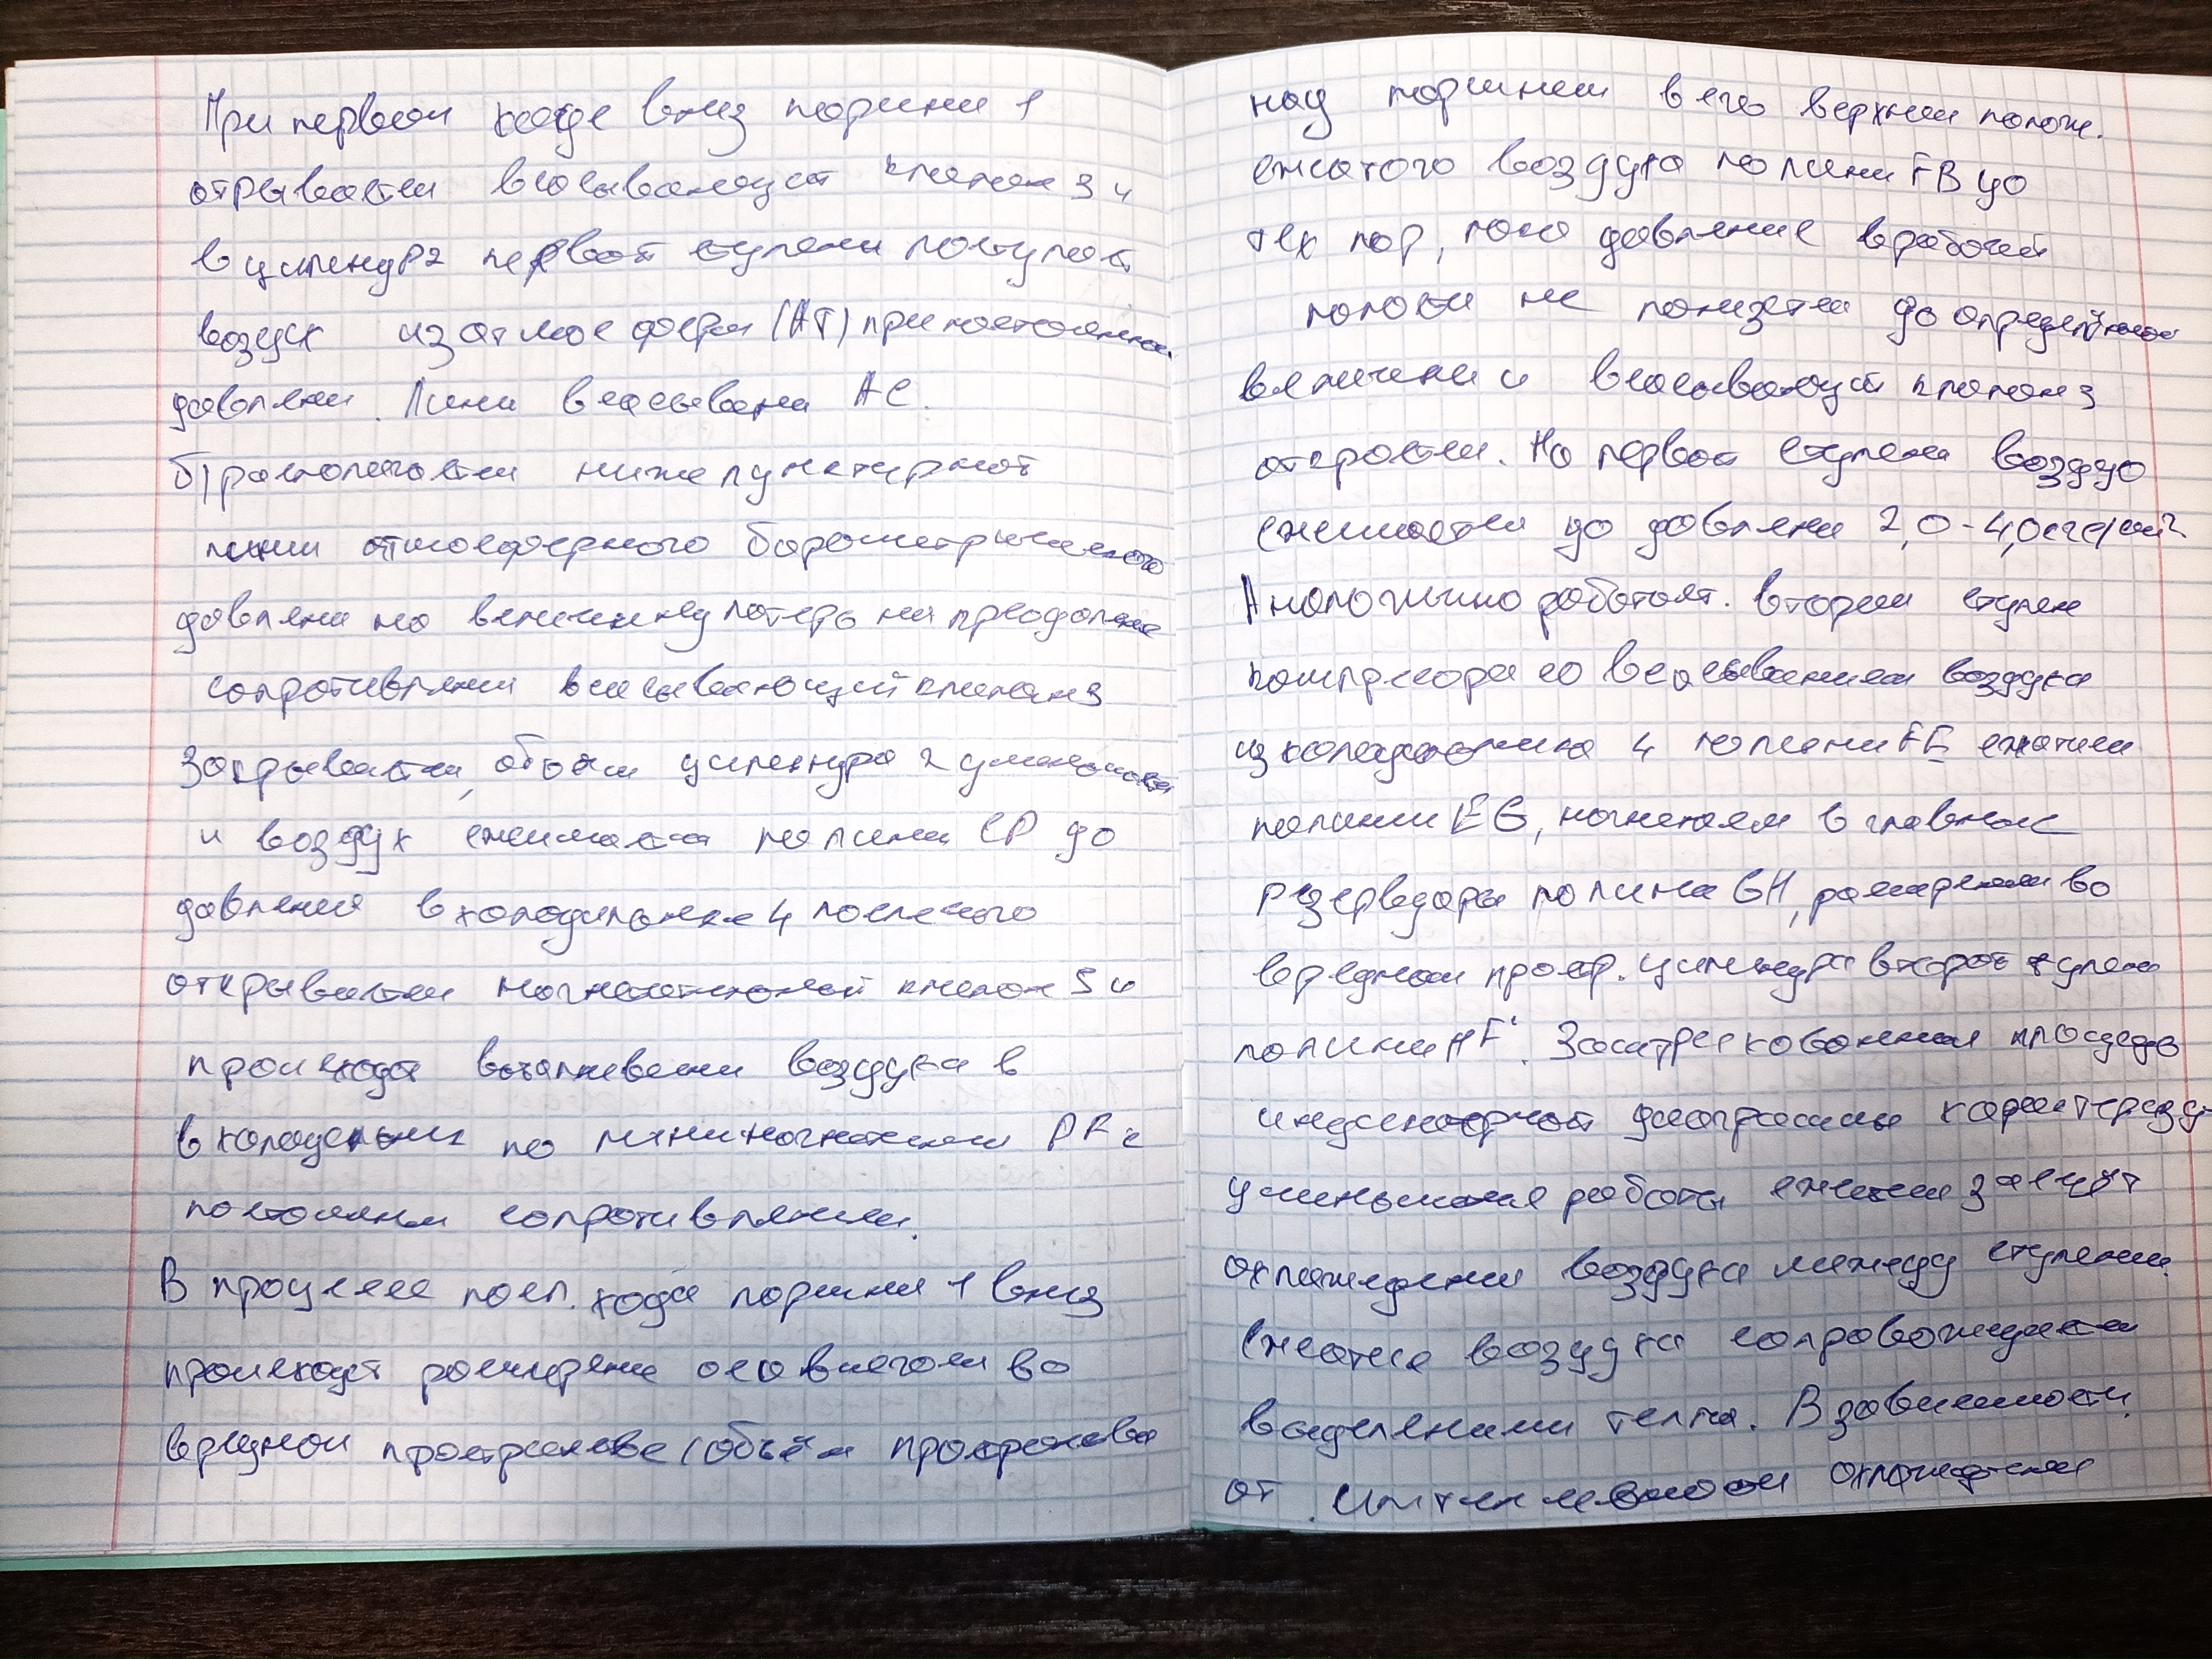 При первом ходе вниз поршня 1
отрывается всасывающий клапан 3 и
в цилиндр 2 первой ступени поступает
воздух из атмосферы (АТ) при постоянном
давлени. Лини всасывани АС.
б) располагается ниже пунктирной
линии атмосферного барометрического
давлени на величину потерь на преодолени
сопротивлени всасывающий клапан 3
закрывается, объём цилиндра 2 уменьшается
и воздух сжимается по лини СР до
давления в холодильнике 4 после чего
открывается нагнетательной клапан 5 и
происходт выталкивани воздуха в
в холодильник по линии нагнетании DF с
постоянн сопротивлением.
В процессе посл. хода поршня 1 вниз
происходт расширени оставшегося во
вредном пространстве (объём пространства
над поршнем в его верхнем полож.
сжатого воздуха по лини FB до
тех пор, пока давление в рабочей
полости не понизется до определённой
величени и всасывающий клапан 3
откроется. На первой ступени воздух
сжимается до давлени 2,0-4,0 кгс/см²
Аналогично работает. вторая ступен
компрессора со всасыванием воздуха
из холодильника 4 по лини FE сжатием
по линии EG, нагнетаем в главные
резервуары по лини GH, расширени во
вредном простр. цилиндра второй ступени
по лини HF'. Заштрихованная площадь
индикаторной диаграммы характеризу
уменьшение работы сжатия за счёт
охлаждени воздуха между ступеням.
Сжатие воздуха сопровождается
выделеними тепла. В зависимости
от интенсивности охлаждения